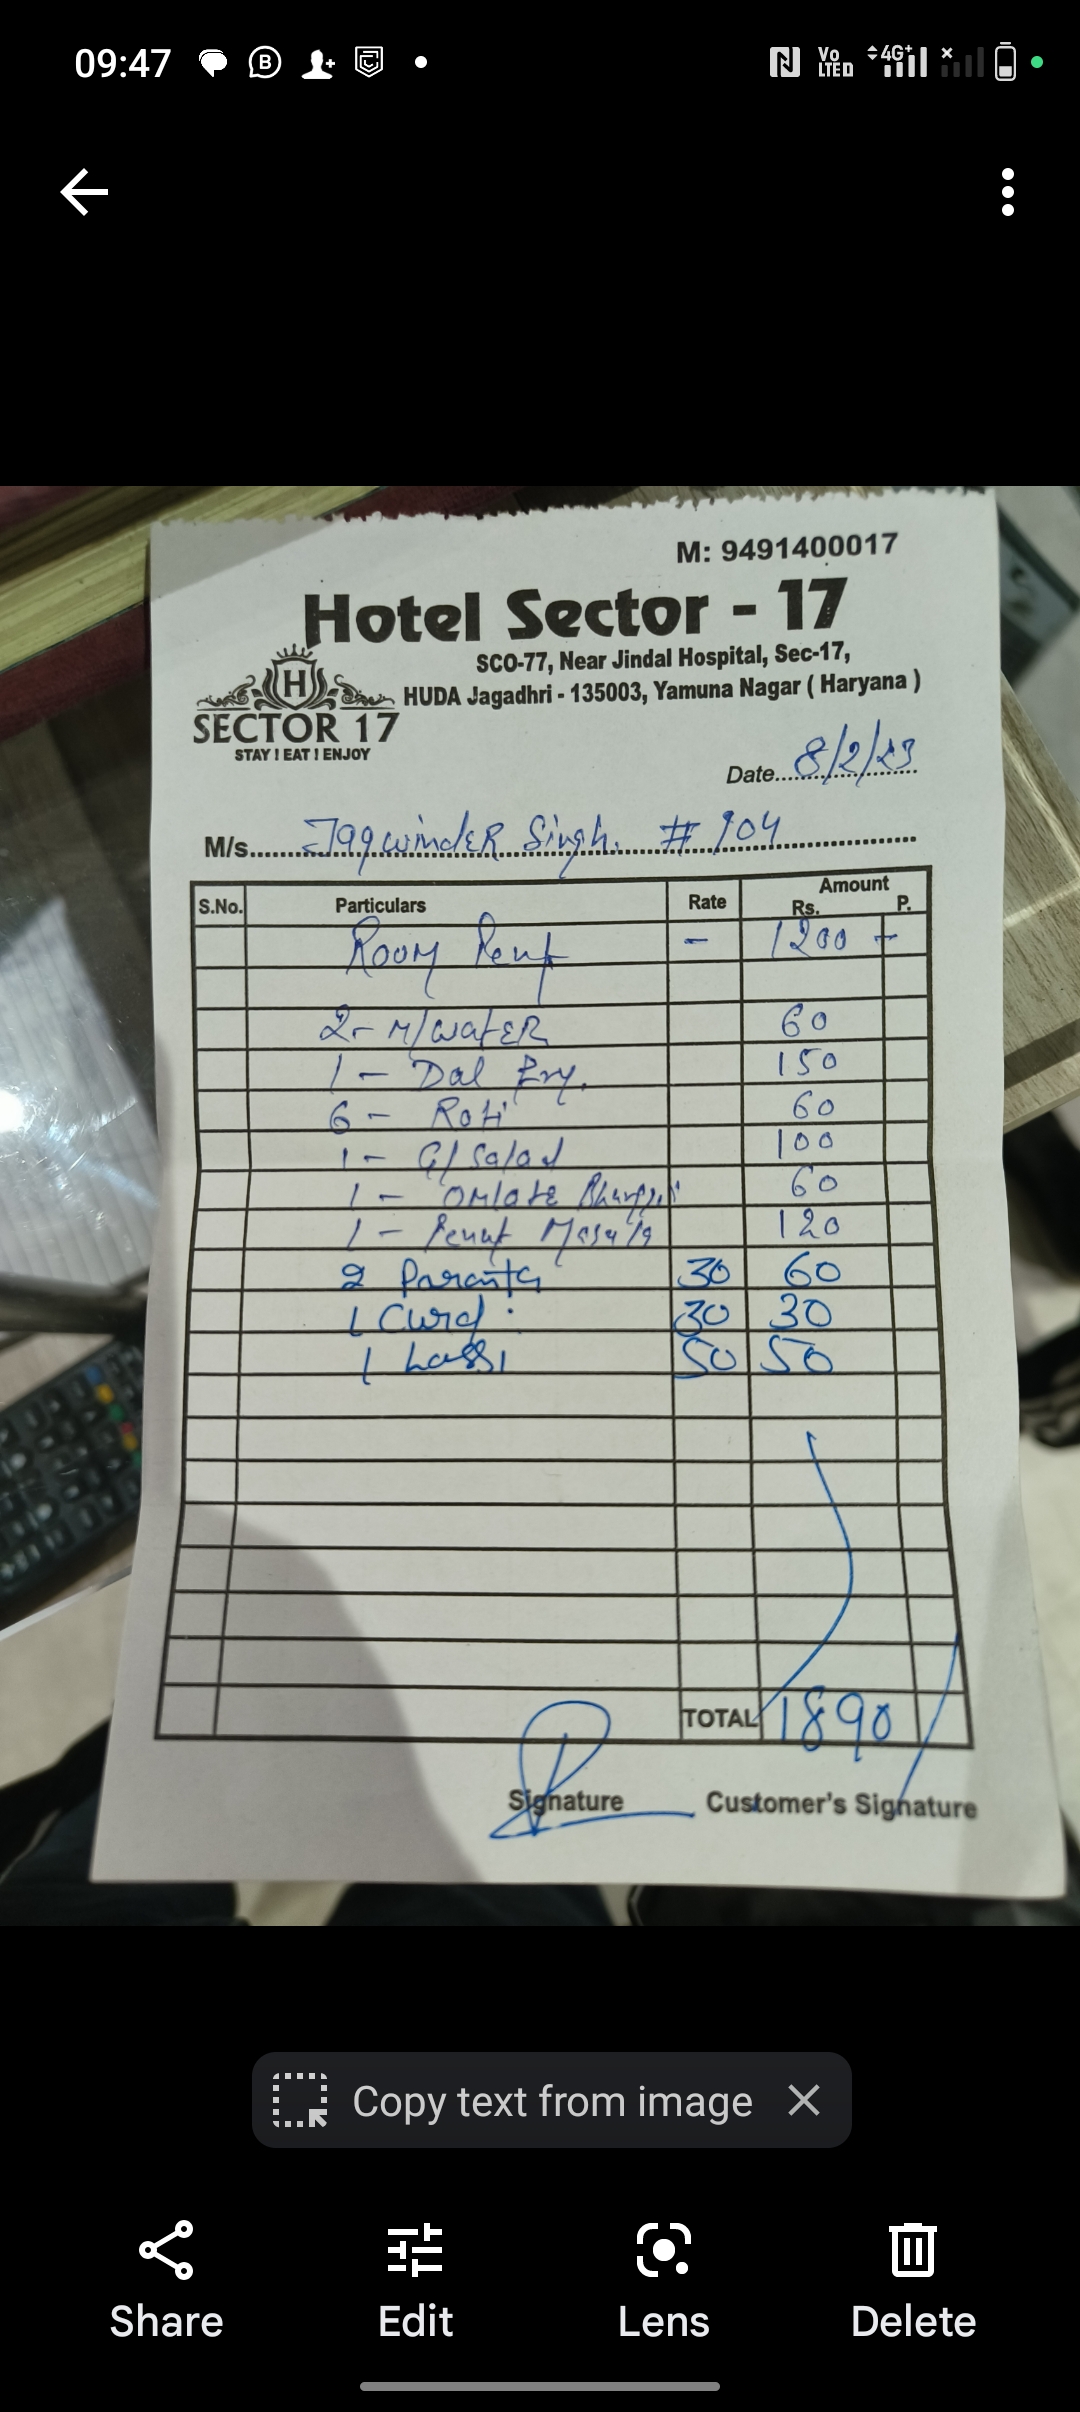 09:47
Vo LTED 4G+
M: 9491400017
Hotel Sector - 17
SCO-77, Near Jindal Hospital, Sec-17,
HUDA Jagadhri - 135003, Yamuna Nagar ( Haryana )
H
SECTOR 17
STAY ! EAT ! ENJOY
Date 8/2/23
M/s. JagwindER Singh. # 104
S.No. Particulars Rate Amount Rs. P.
Room Rent - 1200 -
2- M/WatER 60
1 - Dal Fry. 150
6 - Roti 60
1 - G/Salad 100
1 - OMlate 60
1 - Penut Masala 120
2 Paranta 30 60
1 Curd 30 30
1 Lassi 50 50
TOTAL 1890
Signature Customer's Signature
Copy text from image
Share Edit Lens Delete